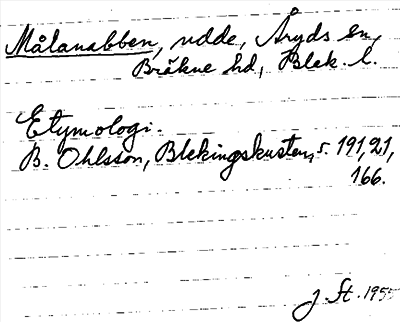 Målanabben, udde, Åryds sn,
Bräkne hd, Blek. l.
Etymologi.
B. Ohlsson, Blekingskusten, s. 191, 21,
166.
J. St. 1955